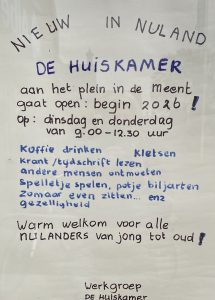 NIEUW IN NULAND
DE HUISKAMER
aan het plein in de Meent
gaat open: begin 2026!
Op: dinsdag en donderdag
van 9.00-12.30 uur
Koffie drinken Kletsen
Krant/tydschrift lezen
andere mensen ontmoeten
Spelletje spelen, potje biljarten
Zomaar even zitten... enz
gezelligheid
Warm welkom voor alle
NULANDERS van jong tot oud!
Werkgroep
DE HUISKAMER